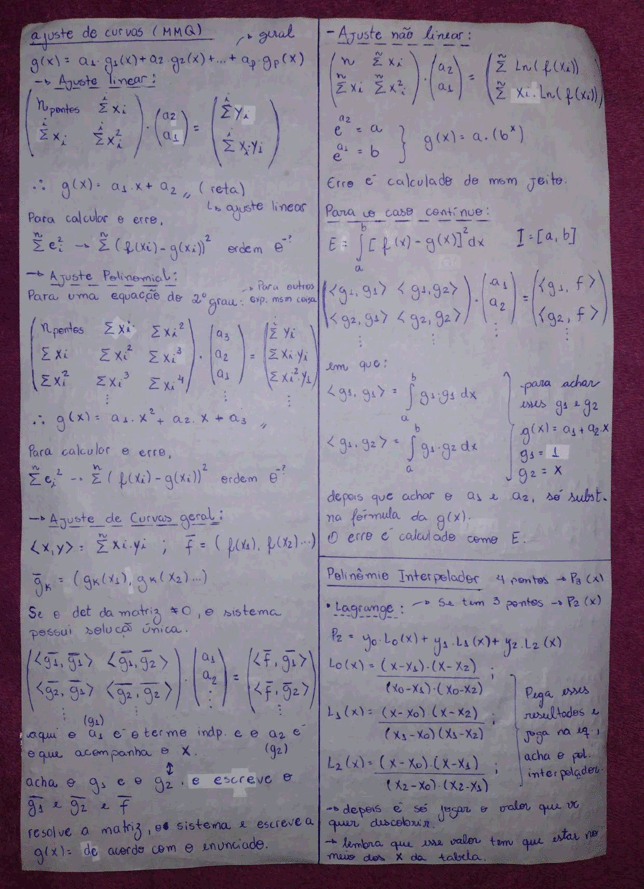 ajuste de curvas (MMQ) ↗ geral
g(x) = a1.g1(x)+a2.g2(x)+...+ap.gp(x)
→ Ajuste linear:
( n pontos Σxi ; Σxi Σxi² ) . ( a2 ; a1 ) = ( Σyi ; Σxi.yi )
∴ g(x) = a1.x + a2 ,, (reta)
↳ ajuste linear
Para calcular o erro,
Σei² → Σ(f(xi) - g(xi))² ordem e^-?
→ Ajuste Polinomial:
Para uma equação do 2º grau: → Para outros exp. msm coisa
( n pontos Σxi Σxi² ; Σxi Σxi² Σxi³ ; Σxi² Σxi³ Σxi⁴ ; ⋮ ) . ( a3 ; a2 ; a1 ; ⋮ ) = ( Σyi ; Σxi.yi ; Σxi².yi ; ⋮ )
∴ g(x) = a1.x² + a2.x + a3 ,,
Para calcular o erro,
Σei² → Σ(f(xi) - g(xi))² ordem e^-?
→ Ajuste de Curvas geral:
<x,y> = Σxi.yi ; f̄ = (f(x1), f(x2)...)
ḡk = (gk(x1), gk(x2)...)
Se o det da matriz ≠0, o sistema
possui soluçã única.
( <ḡ1, ḡ1> <ḡ1, ḡ2> ; <ḡ2, ḡ1> <ḡ2, ḡ2> ; ⋮ ) . ( a1 ; a2 ; ⋮ ) = ( <f̄, ḡ1> ; <f̄, ḡ2> ; ⋮ )
aqui o a1 (g1) é o termo indp. e o a2 é
o que acompanha o x. (g2)
acha o g1 e o g2, e escreve o
ḡ1 e ḡ2 e f̄
resolve a matriz, o sistema e escreve a
g(x)= de acordo com o enunciado.
- Ajuste não linear:
( n Σxi ; Σxi Σxi² ) . ( a2 ; a1 ) = ( Σ Ln(f(xi)) ; Σ xi.Ln(f(xi)) )
e^a2 = a
e^a1 = b } g(x) = a.(b^x)
Erro é calculado do msm jeito.
Para o caso contínuo:
E = ∫ₐᵇ [f(x) - g(x)]² dx I = [a, b]
( <g1, g1> <g1, g2> ; <g2, g1> <g2, g2> ; ⋮ ) . ( a1 ; a2 ; ⋮ ) = ( <g1, f> ; <g2, f> ; ⋮ )
em que:
<g1, g1> = ∫ₐᵇ g1.g1 dx
<g1, g2> = ∫ₐᵇ g1.g2 dx
.para achar
esses g1 e g2
g(x) = a1 + a2.x
g1 = 1
g2 = x
depois que achar o a1 e a2, só subst.
na fórmula da g(x).
O erro é calculado como E.
Polinômio Interpolador 4 pontos → P3(x)
• Lagrange: → Se tem 3 pontos → P2(x)
P2 = y0.L0(x) + y1.L1(x) + y2.L2(x)
L0(x) = (x-x1).(x-x2) / (x0-x1).(x0-x2) ;
L1(x) = (x-x0)(x-x2) / (x1-x0)(x1-x2) ;
L2(x) = (x-x0).(x-x1) / (x2-x0).(x2-x1) ;
Pega esses
resultados e
joga na eq,
acha o pol.
interpolador.
→ depois é só jogar o valor que vc
quer descobrir.
→ lembra que esse valor tem que estar no
meio dos x da tabela.